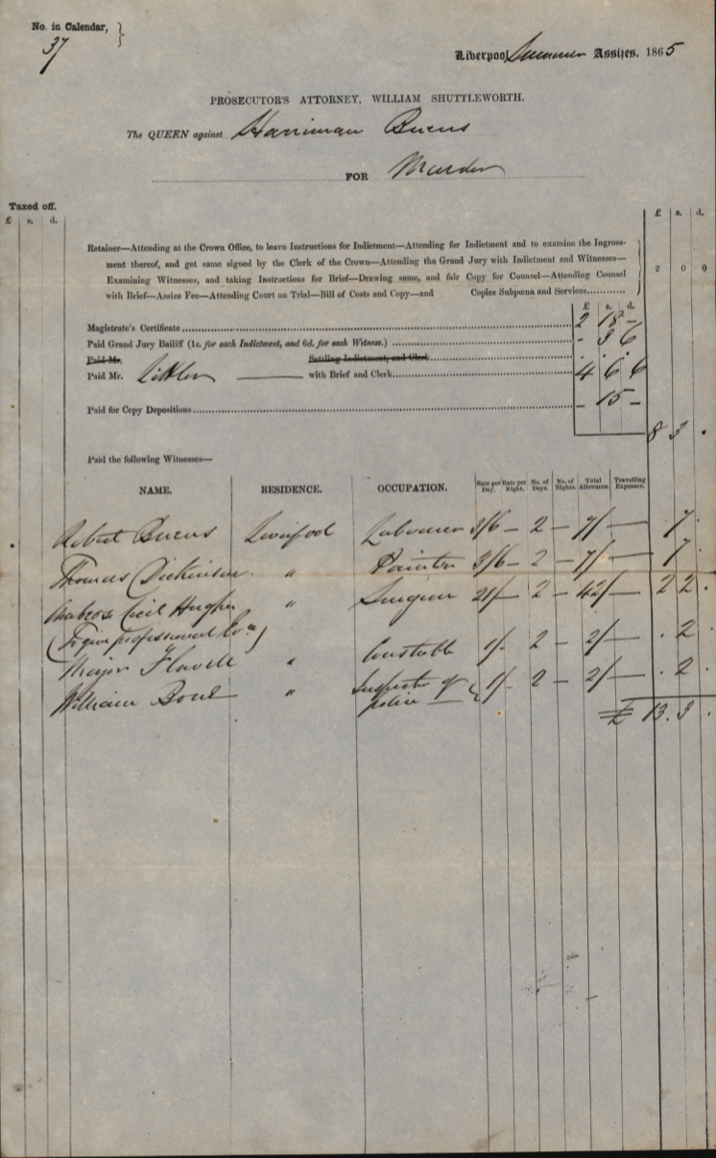 No. in Calendar, }
37
Liverpool Summer Assizes. 1865
PROSECUTOR'S ATTORNEY, WILLIAM SHUTTLEWORTH.
The QUEEN against Harriman Burns
FOR Murder
Taxed off.
£ s. d. £ s. d.
Retainer—Attending at the Crown Office, to leave Instructions for Indictment—Attending for Indictment and to examine the Ingross-
ment thereof, and get same signed by the Clerk of the Crown—Attending the Grand Jury with Indictment and Witnesses—
Examining Witnesses, and taking Instructions for Brief—Drawing same, and fair Copy for Counsel—Attending Counsel 2 0 0
with Brief—Assize Fee—Attending Court on Trial—Bill of Costs and Copy—and Copies Subpœna and Services
£ s. d.
Magistrate's Certificate 2 18 -
Paid Grand Jury Bailiff (1s. for each Indictment, and 6d. for each Witness.) - 3 6
Paid Mr. Settling Indictment, and Clerk . . .
Paid Mr. Littler with Brief and Clerk 4 6 6
Paid for Copy Depositions - 15 -
8 3 .
Paid the following Witnesses—
NAME. RESIDENCE. OCCUPATION. Rate per Day. Rate per Night. No. of Days. No. of Nights. Total Allowance. Travelling Expenses.
Robert Burns Liverpool Labourer 3/6 - 2 - 7/ — . 7 .
Thomas Dickinson " Painter 3/6 - 2 - 7/ — . 7 .
Cecil Hughes " Surgeon 21/ - 2 - 42/ — 2 2 .
(To give professional Ev.)
Major Flavell " Constable 1/- 2 - 2/ — . 2 .
William Bone " Inspector of 1/- 2 - 2/ — . 2 .
police
£ 13 . 3 .